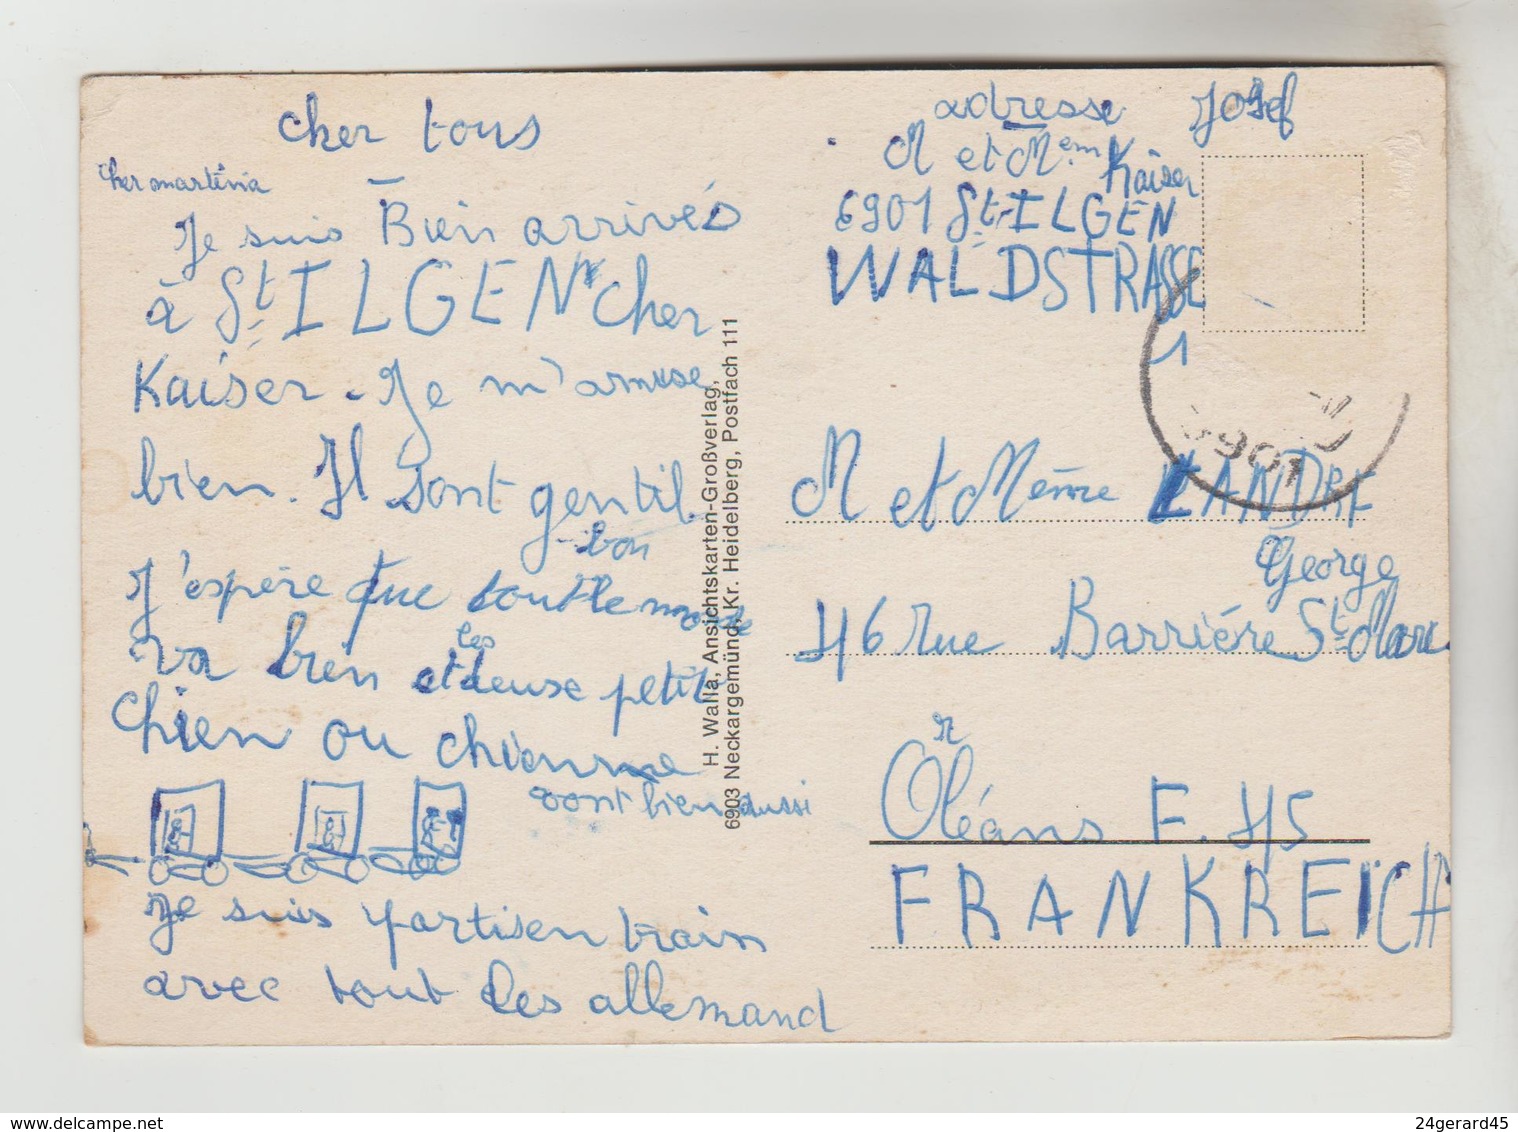 cher tous
cher martinia
Je suis Bien arrivés
à St ILGEN cher
Kaiser. Je m'amuse
bien. Il sont gentil
bon
J'espère que toutle monde
va bien et les deuse petit
chien ou chienne
sont bien aussi
Je suis partisen train
avec tout les allemand
H. Walla, Ansichtskarten-Großverlag,
6903 Neckargemünd, Kr. Heidelberg, Postfach 111
adresse Josef
M et Mem Kaiser
6901 St. ILGEN
WALDSTRASSE
1
6901
M et Mème LANDRE
George
46 rue Barriére St Marc
r
Oléans F. 45
FRANKREICH
24gerard45 www.delcampe.net